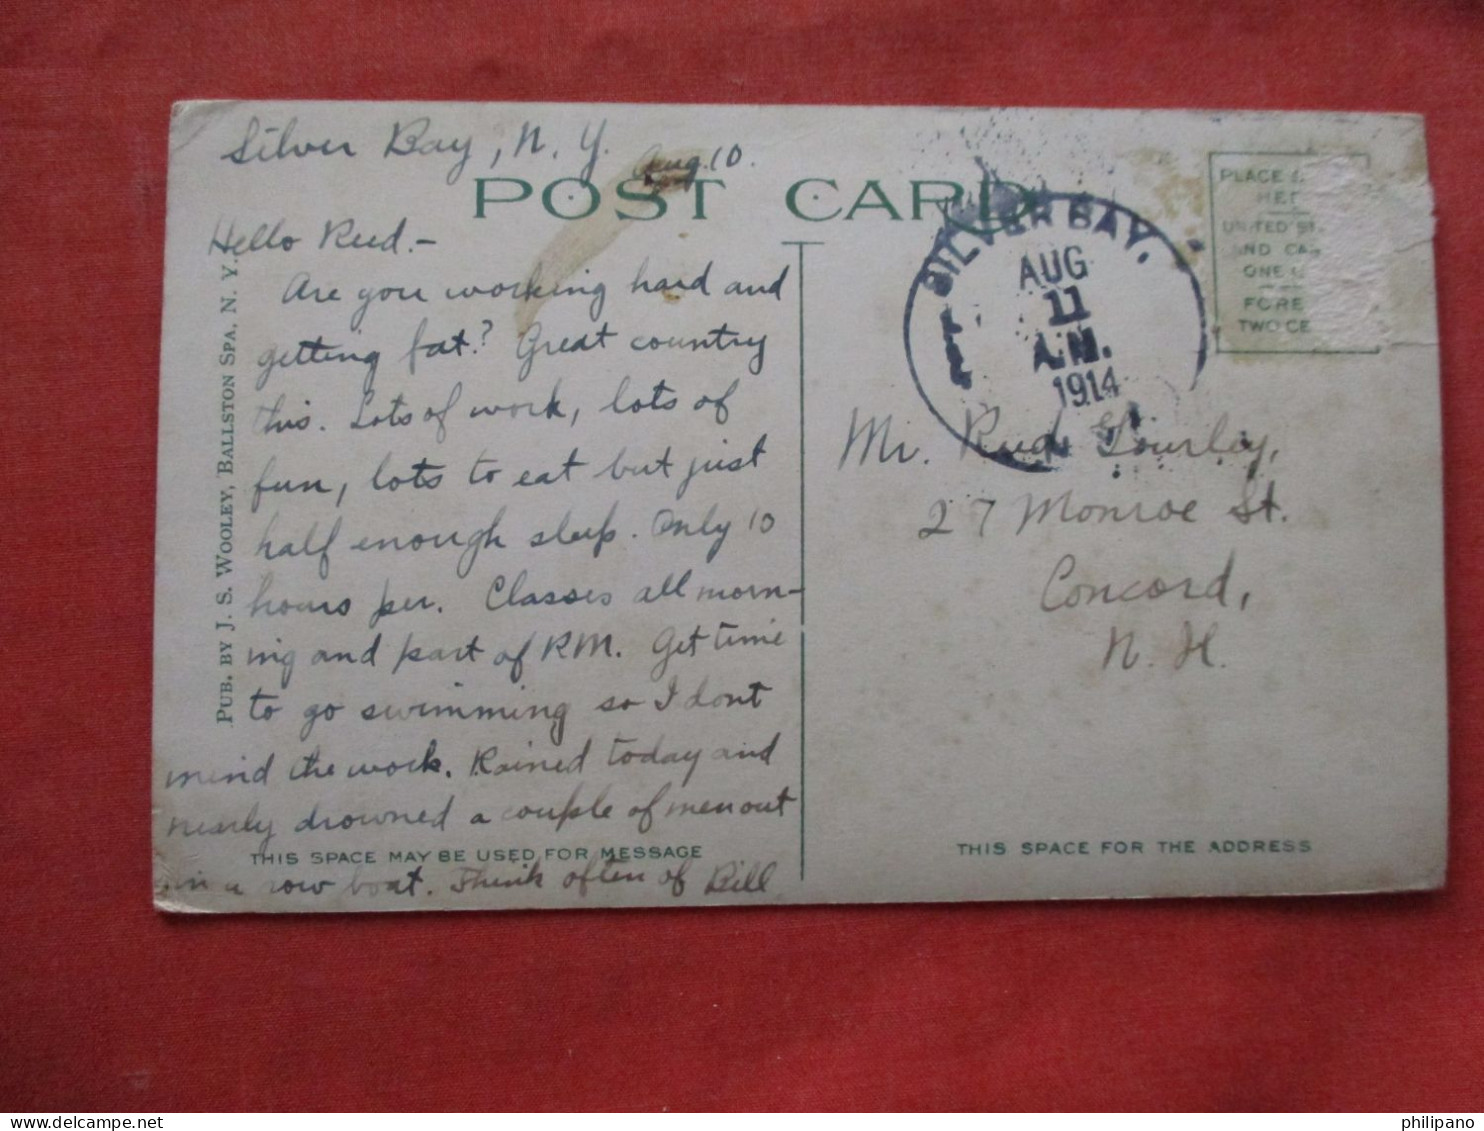 Silver Bay, N.Y. Aug. 10.
POST CARD
Hello Rud.-
Are you working hard and
getting fat? Great country
this. Lots of work, lots of
fun, lots to eat but just
half enough sleep. Only 10
hours per. Classes all morn-
ing and part of P.M. Get time
to go swimming so I dont
mind the work. Rained today and
nearly drowned a couple of men out
THIS SPACE MAY BE USED FOR MESSAGE
in a row boat. Think often of Bill
PUB. BY J. S. WOOLEY, BALLSTON SPA, N. Y.
SILVER BAY,
AUG
11
A.M.
1914
PLACE
HER
UNITED ST
AND CA
ONE
FORE
TWO CE
Mr. Rud Gourley,
27 Monroe St.
Concord,
N. H.
THIS SPACE FOR THE ADDRESS
philipano